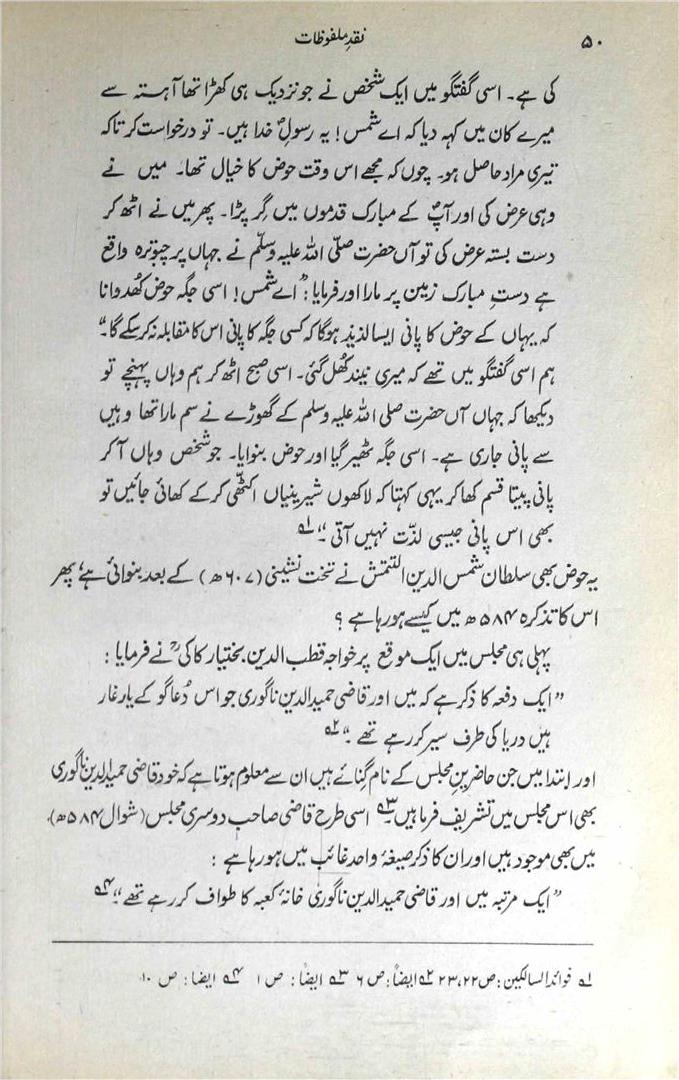 ۵۰
نقدِ ملفوظات
کی ہے۔ اسی گفتگو میں ایک شخص نے جو نزدیک ہی کھڑا تھا آہستہ سے
میرے کان میں کہہ دیا کہ اے شمس! یہ رسولِؐ خدا ہیں۔ تو درخواست کر تاکہ
تیری مراد حاصل ہو۔ چوں کہ مجھے اس وقت حوض کا خیال تھا۔ میں نے
وہی عرض کی اور آپؐ کے مبارک قدموں میں گر پڑا۔ پھر میں نے اٹھ کر
دست بستہ عرض کی تو آں حضرت صلّی اللہ علیہ وسلّم نے جہاں پر چبوترہ واقع
ہے دستِ مبارک زمین پر مارا اور فرمایا: "اے شمس! اسی جگہ حوض کھدوانا
کہ یہاں کے حوض کا پانی ایسا لذیذ ہوگا کہ کسی جگہ کا پانی اس کا مقابلہ نہ کر سکے گا۔"
ہم اسی گفتگو میں تھے کہ میری نیند کُھل گئی۔ اسی صبح اٹھ کر ہم وہاں پہنچے تو
دیکھا کہ جہاں آں حضرت صلی اللہ علیہ وسلم کے گھوڑے نے سم مارا تھا وہیں
سے پانی جاری ہے۔ اسی جگہ ٹھیر گیا اور حوض بنوایا۔ جو شخص وہاں آ کر
پانی پیتا قسم کھا کر یہی کہتا کہ لاکھوں شیرینیاں اکٹھّی کر کے کھائی جائیں تو
بھی اس پانی جیسی لذّت نہیں آتی۔" ۱؎
یہ حوض بھی سلطان شمس الدین التتمش نے تخت نشینی (۶۰۷ھ) کے بعد بنوائی ہے، پھر
اس کا تذکرہ ۵۸۴ھ میں کیسے ہو رہا ہے؟
پہلی ہی مجلس میں ایک موقع پر خواجہ قطب الدین بختیار کاکیؒ نے فرمایا:
"ایک دفعہ کا ذکر ہے کہ میں اور قاضی حمید الدین ناگوری جو اس دُعا گو کے یارِ غار
ہیں دریا کی طرف سیر کر رہے تھے۔" ۲؎
اور ابتدا میں جن حاضرینِ مجلس کے نام گِنائے ہیں ان سے معلوم ہوتا ہے کہ خود قاضی حمید الدین ناگوری
بھی اس مجلس میں تشریف فرما ہیں۔ ۳؎ اسی طرح قاضی صاحب دوسری مجلس (شوال ۵۸۴ھ)
میں بھی موجود ہیں اور ان کا ذکر صیغۂ واحد غائب میں ہو رہا ہے:
"ایک مرتبہ میں اور قاضی حمید الدین ناگوری خانۂ کعبہ کا طواف کر رہے تھے" ۴؎
۱؎ فوائد السالکین: ص ۲۲، ۲۳ ۲؎ ایضاً: ص ۶ ۳؎ ایضاً: ص ۱ ۴؎ ایضاً: ص ۱۰